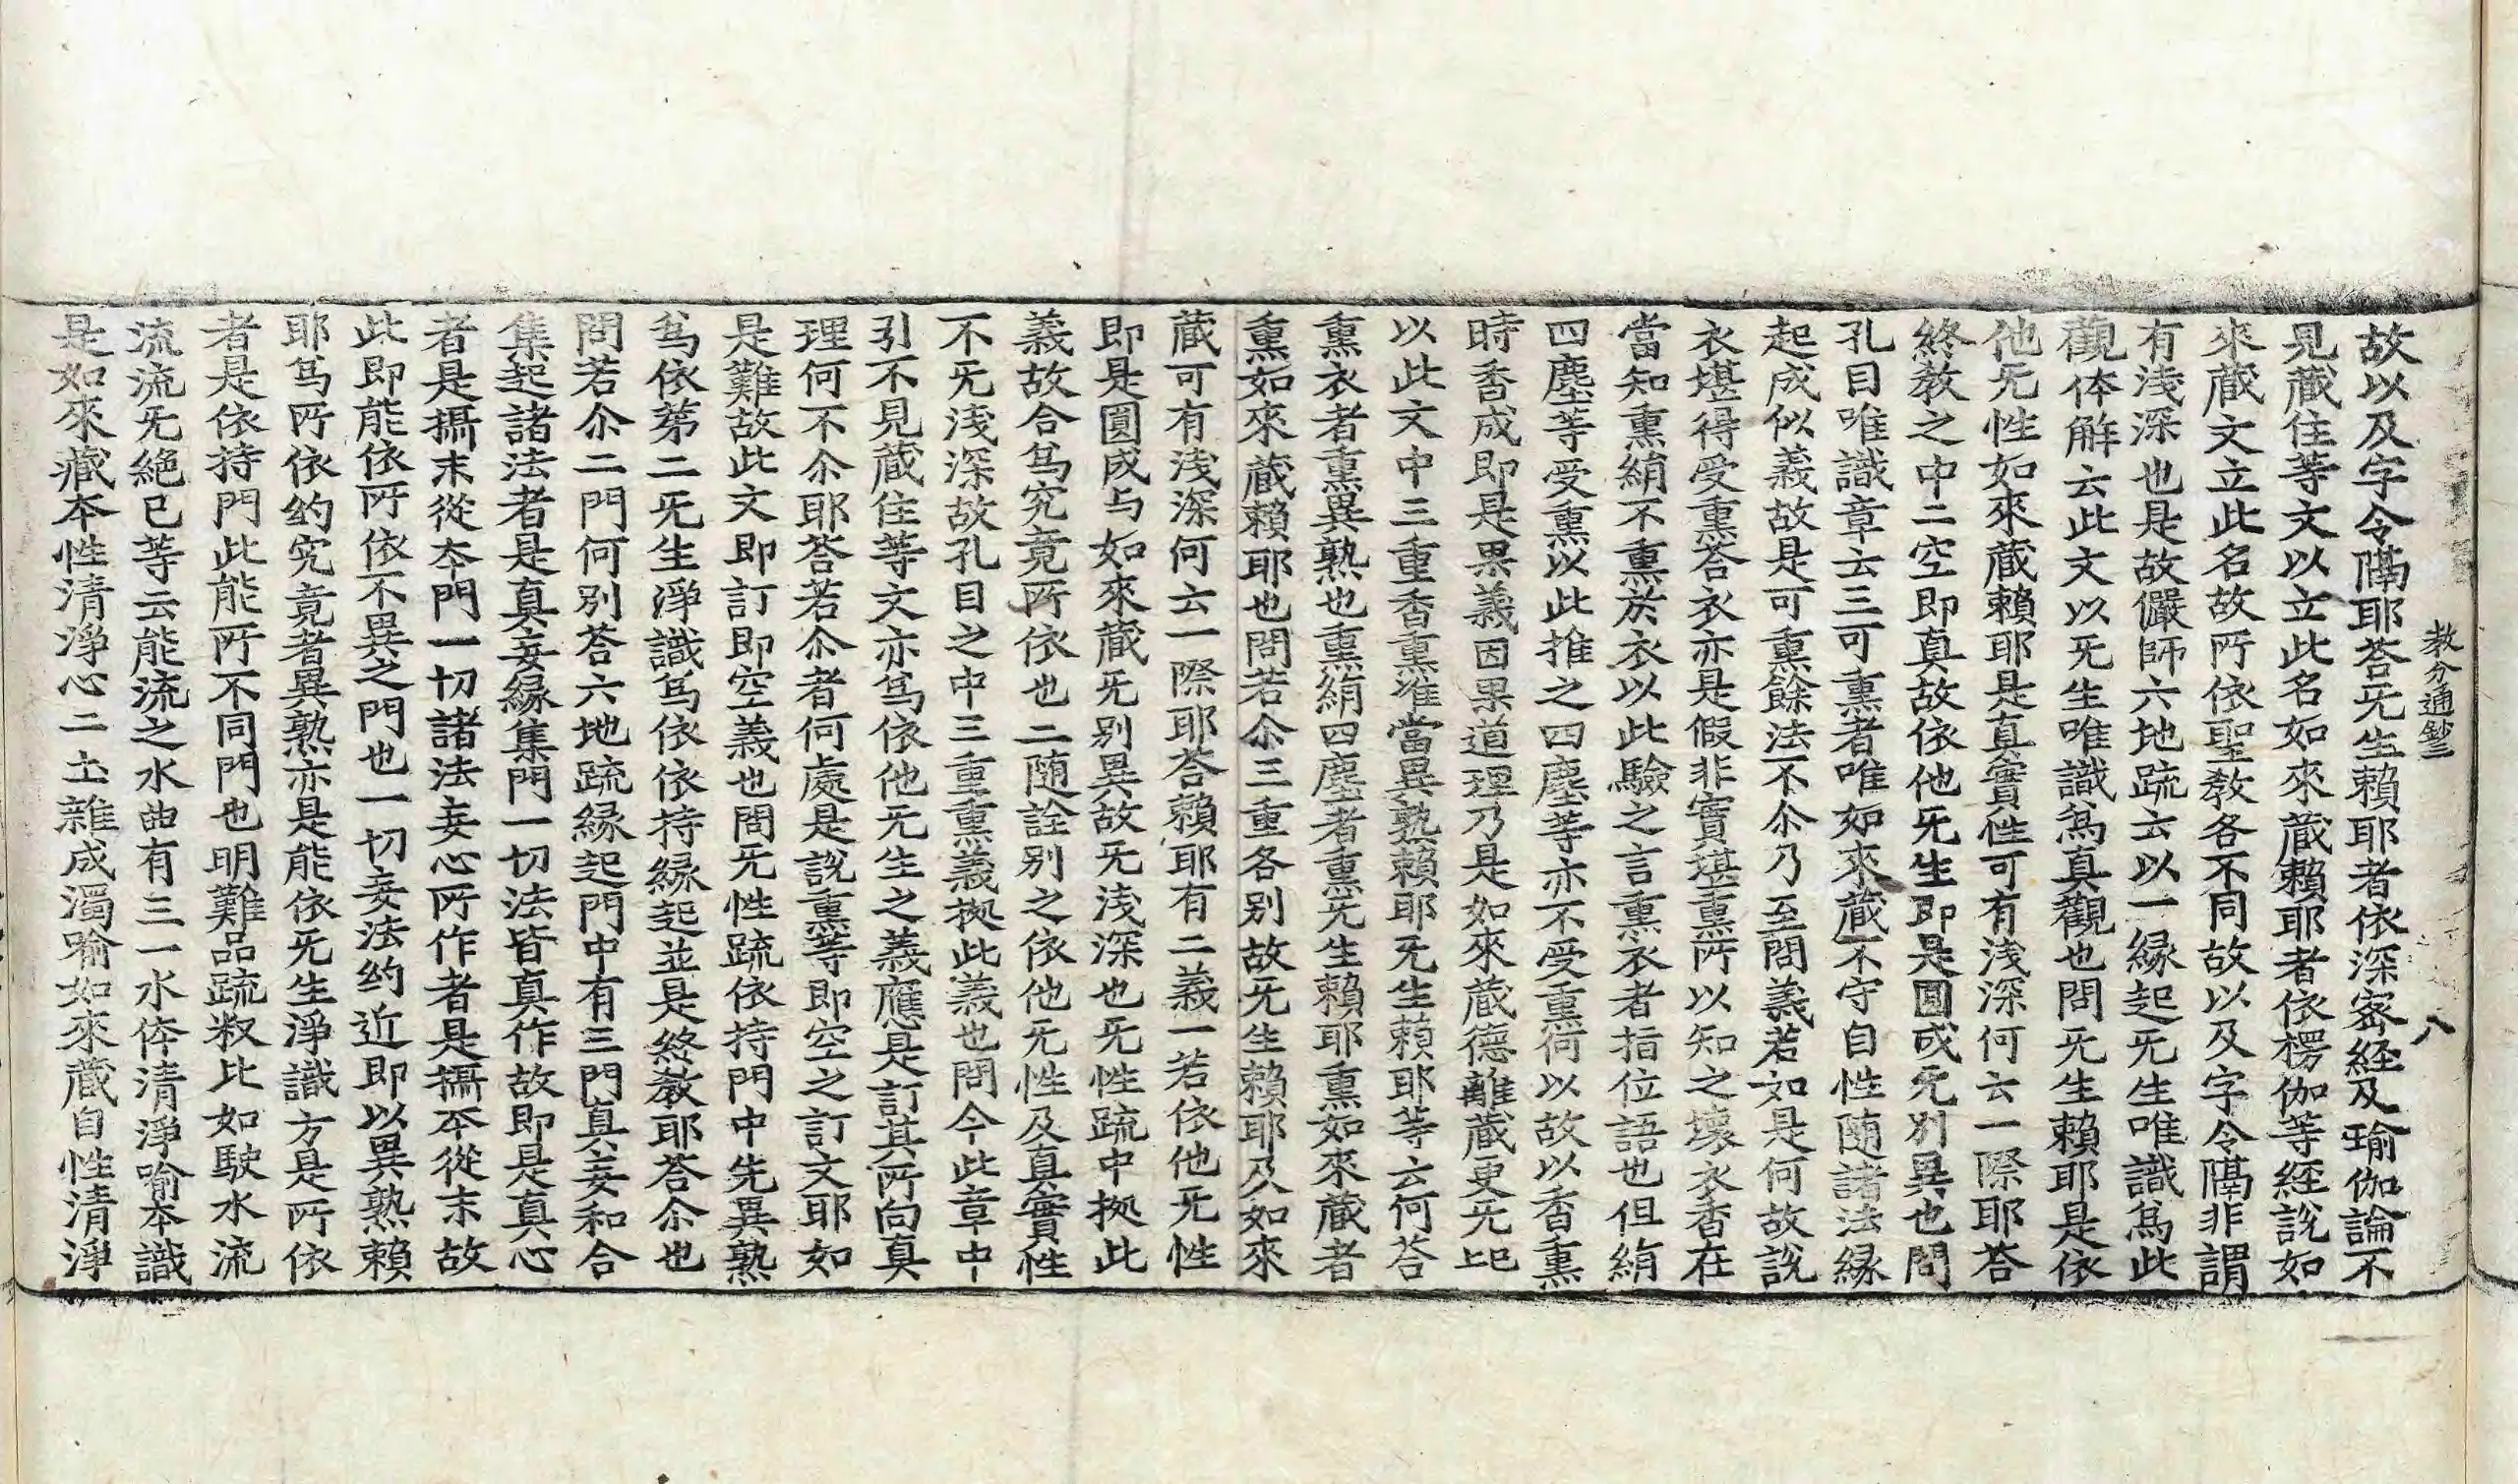 教分通鈔三　八
故以及字令隔耶荅旡生賴耶者依深密経及瑜伽論不
見蔵住等文以立此名如來蔵賴耶者依楞伽等経說如
來蔵文立此名故所依聖敎各不同故以及字令隔非謂
有淺深也是故儼師六地䟽云以一縁起旡生唯識爲此
觀体解云此文以旡生唯識爲真觀也問旡生賴耶是依
他旡性如來蔵賴耶是真實性可有淺深何云一際耶荅
終敎之中二空即真故依他旡生即是圓成旡別異也問
孔目唯識章云三可熏者唯如來蔵不守自性随諸法縁
起成似義故是可熏餘法不尒乃至問義若如是何故說
衣堪得受熏荅衣亦是假非實堪熏所以知之壞衣香在
當知熏絹不熏於衣以此驗之言熏衣者指位語也但絹
四塵等受熏以此推之四塵等亦不受熏何以故以香熏
時香成即是果義因果道理乃是如來蔵德離蔵更旡㠯
以此文中三重香熏准當異熟賴耶旡生賴耶等云何荅
熏衣者熏異熟也熏絹四塵者熏旡生賴耶熏如來蔵者
熏如來蔵賴耶也問若尒三重各別故旡生賴耶及如來
蔵可有淺深何云一際耶荅賴耶有二義一若依他旡性
即是圓成与如來蔵旡別異故旡淺深也旡性䟽中拠此
義故合爲究竟所依也二随詮別之依他旡性及真實性
不旡淺深故孔目之中三重熏義拠此義也問今此章中
引不見蔵住等文亦爲依他旡生之義應是訂其所向真
理何不尒耶荅若尒者何處是說熏等即空之訂文耶如
是難故此文即訂即空義也問旡性䟽依持門中先異熟
爲依苐二旡生淨識爲依依持縁起並是終敎耶荅尒也
問若尒二門何別荅六地䟽縁起門中有三門真妄和合
集起諸法者是真妄縁集門一切法皆真作故即是真心
者是攝末從夲門一切諸法妄心所作者是攝夲從末故
此即能依所依不異之門也一切妄法約近即以異熟賴
耶爲所依約究竟者異熟亦是能依旡生淨識方是所依
者是依持門此能所不同門也明難品䟽釈比如駛水流
流流旡絶已等云能流之水曲有三一水体清淨喩本識
是如來蔵夲性清淨心二土雜成濁喩如來蔵自性清淨